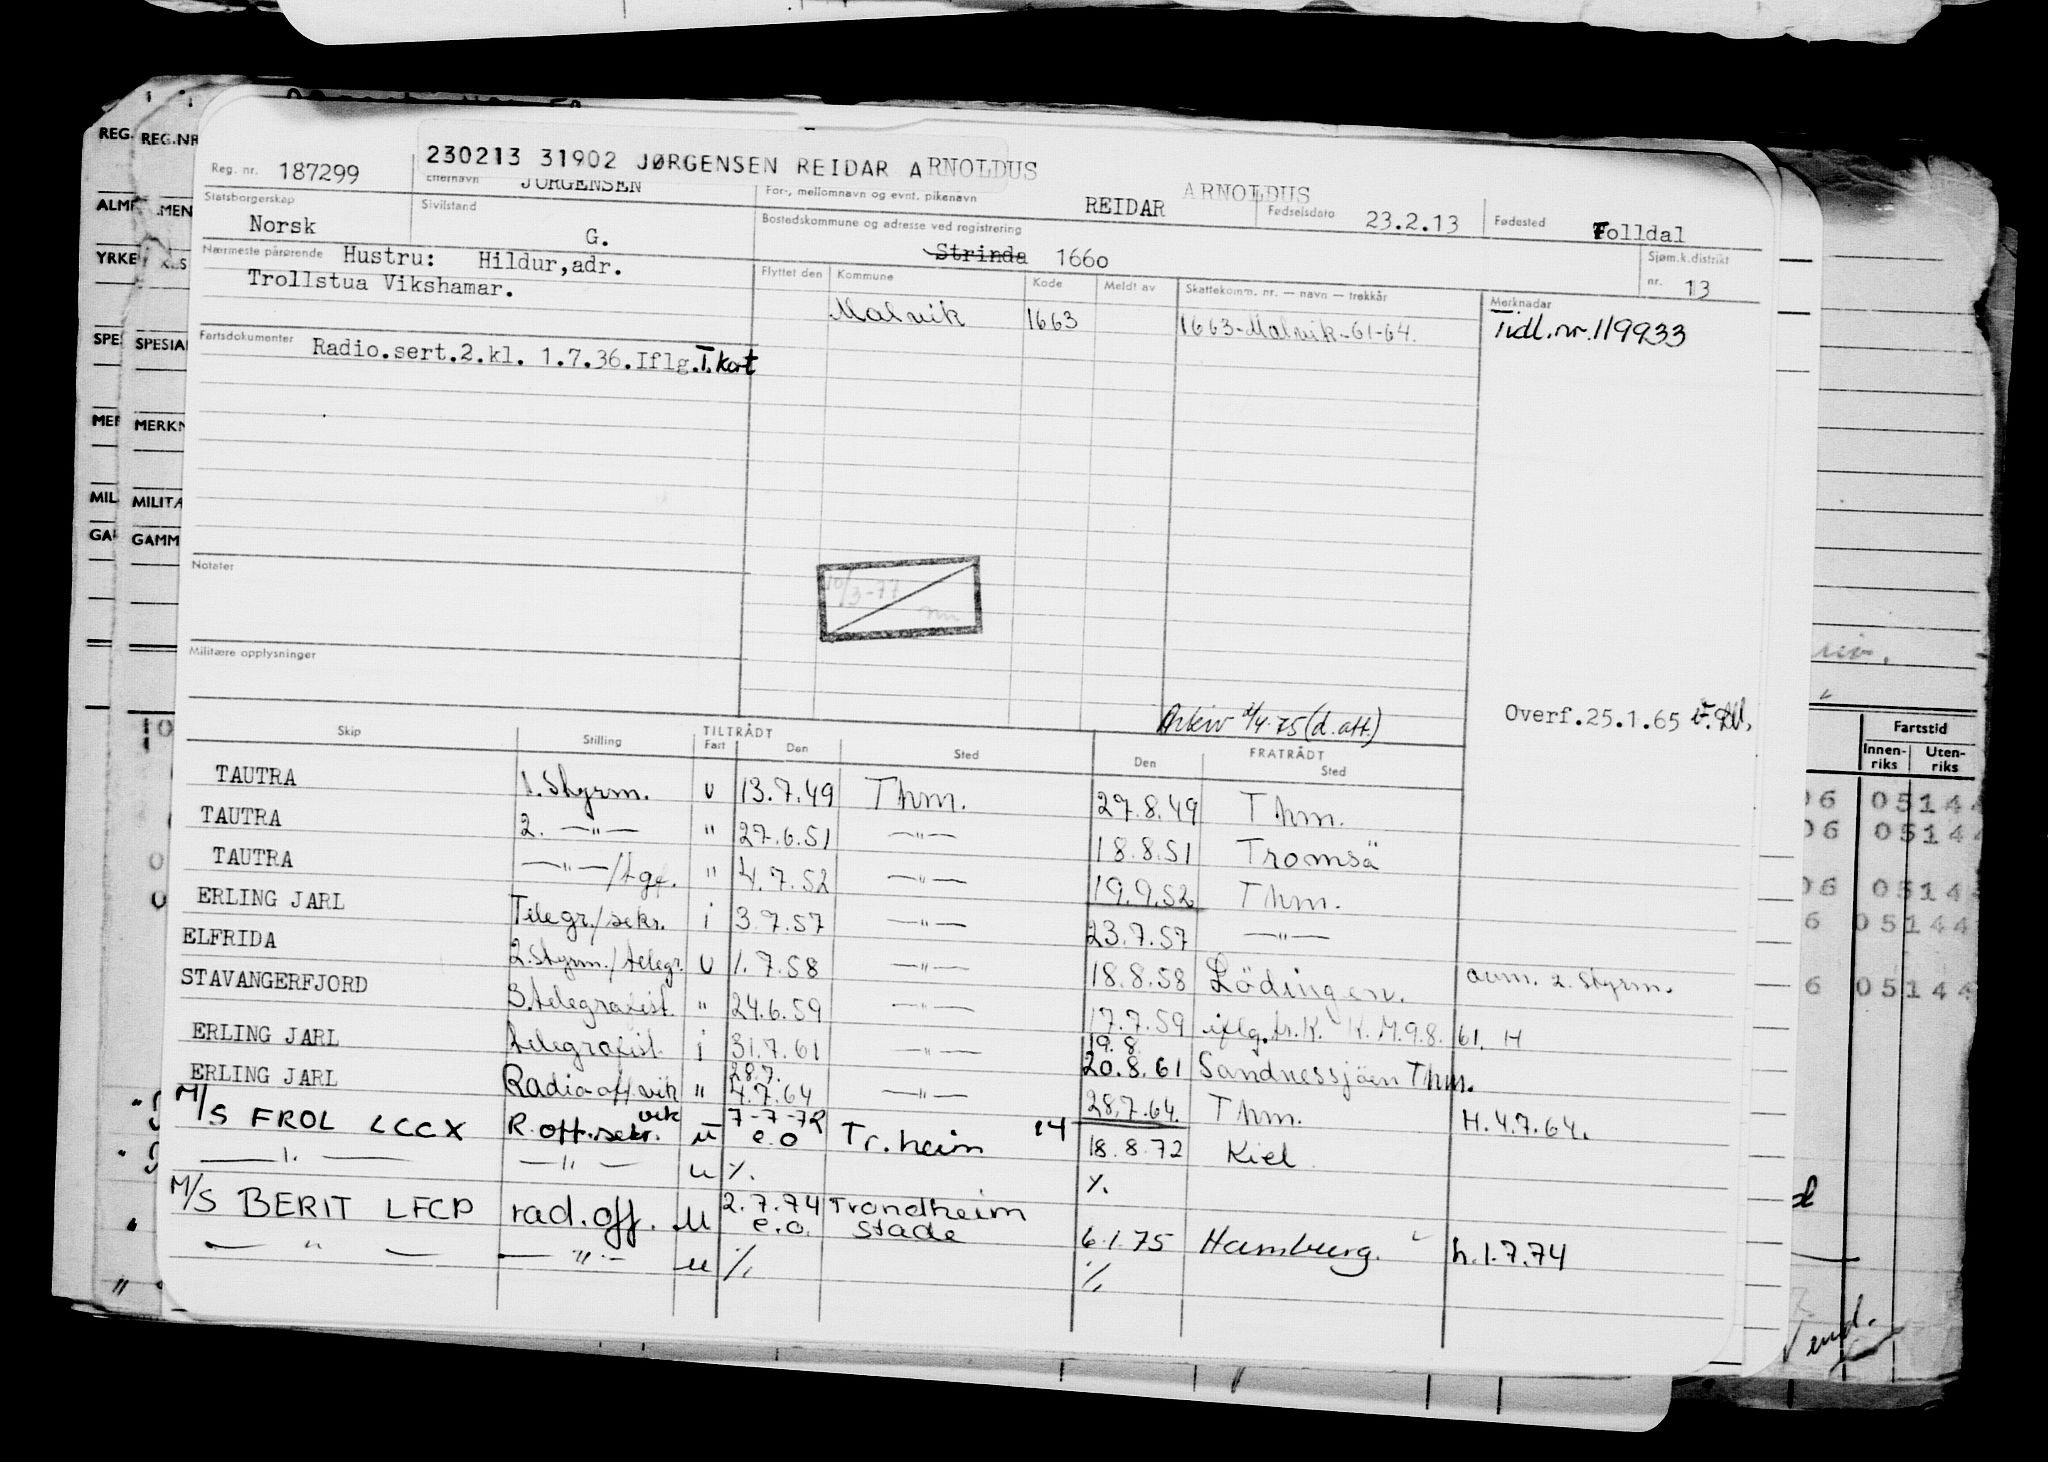 REG. REG.NR
230213 31902 JØRGENSEN REIDAR ARNOLDUS
Reg. nr. 187299 Etternavn JØRGENSEN For-, mellomnavn og evnt. pikenavn REIDAR ARNOLDUS Fødselsdato 23.2.13 Fødested Folldal
Statsborgerskap Norsk Sivilstand G. Bostedskommune og adresse ved registrering Strinda 1660 Sjøm.k.distrikt nr. 13
Nærmeste pårørende Hustru: Hildur,adr.
Trollstua Vikshamar.
Flyttet den Kommune Kode Meldt av Skattekomm. nr. — navn — trekkår Merknader
Malvik 1663 1663-Malvik-61-64. Tidl.nr.119933
Fartsdokumenter Radio.sert.2.kl. 1.7.36.Iflg.I.kort
ALMI
MEN
YRKE
SPE
SPESIA
MER
MERKN
MIL
MILITÆ
GA
GAMM
Notater
10/3-77
Militære opplysninger
Arkiv 2/4.75 (d.att.)
Overf.25.1.65
Skip Stilling TILTRÅDT Fart Den Sted FRATRÅDT Den Sted
TAUTRA 1. Styrm. u 13.7.49 Thm. 27.8.49 Thm.
TAUTRA 2. —"— " 27.6.51 —"— 18.8.51 Tromsö
TAUTRA —"—/tgf. " 4.7.52 —"— 19.9.52 Thm.
ERLING JARL Telegr./sekr. i 3.7.57 —"— 23.7.57 —"—
ELFRIDA 2.Styrm./telegr. u 1.7.58 —"— 18.8.58 Lödingen. avm. 2. styrm.
STAVANGERFJORD 3.telegrafist " 24.6.59 —"— 17.7.59 iflg. fr.K. K.M.9.8.61. H
ERLING JARL telegrafist i 31.7.61 —"— 19.8. 20.8.61 Sandnessjöen Thm.
ERLING JARL Radio off. vik " 28.7. 4.7.64 —"— 28.7.64. Thm. H.4.7.64.
M/S FROL LCCX R.off.sekr. vik u 7-7-72 e.o Tr.heim 14 18.8.72 Kiel
—"— —"— u %. %.
M/S BERIT LFCP rad.off. u 2.7.74 e.o. Trondheim Stade 6.1.75 Hamburg. h.1.7.74
—"— —"— u %. %.
Fartstid
Innen-riks Uten-riks
06 05144
06 05144
06 05144
6 05144
6 05144